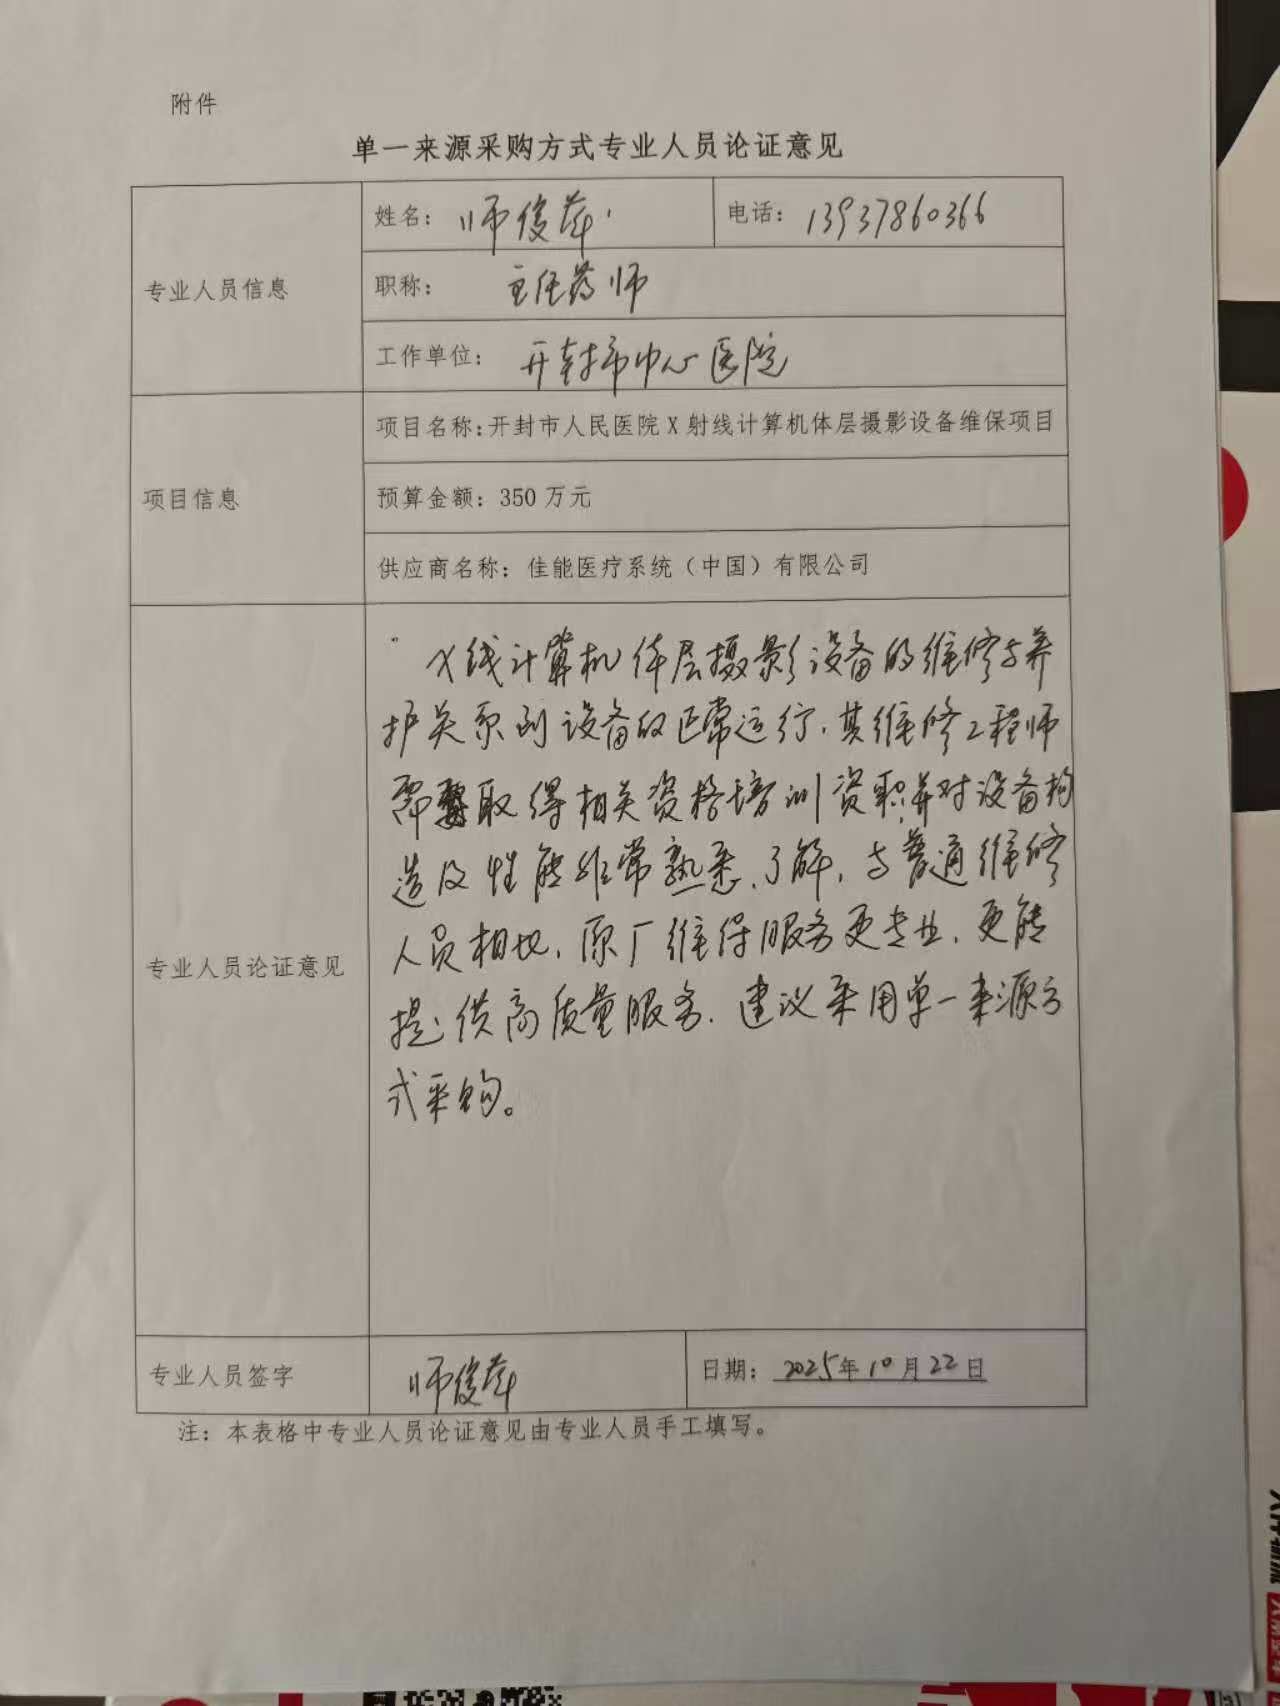 附件
单一来源采购方式专业人员论证意见
专业人员信息
姓名：师俊萍
电话：13937860366
职称：主任药师
工作单位：开封市中心医院
项目信息
项目名称：开封市人民医院X射线计算机体层摄影设备维保项目
预算金额：350万元
供应商名称：佳能医疗系统（中国）有限公司
专业人员论证意见
X线计算机体层摄影设备的维修与养
护关系到设备的正常运行，其维修工程师
需取得相关资格培训资职，并对设备构
造及性能非常熟悉、了解，与普通维修
人员相比，原厂维保服务更专业，更能
提供高质量服务，建议采用单一来源方
式采购。
专业人员签字
师俊萍
日期：2025年10月22日
注：本表格中专业人员论证意见由专业人员手工填写。